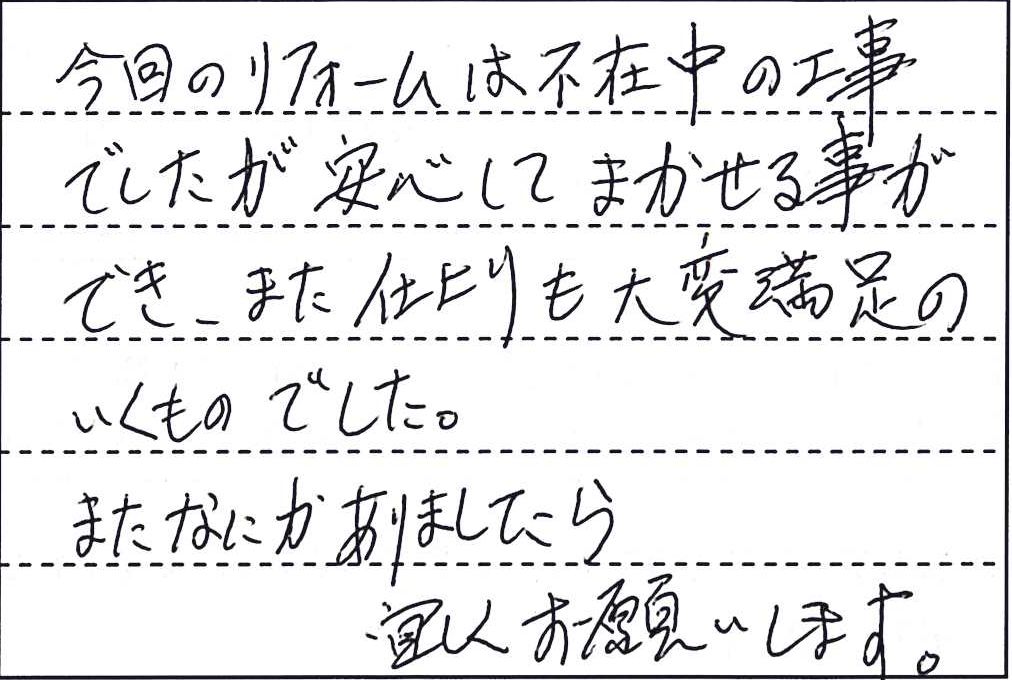 今回のリフォームは不在中の工事
でしたが安心してまかせる事が
でき、また仕上りも大変満足の
いくものでした。
またなにかありましたら
宜しくお願いします。